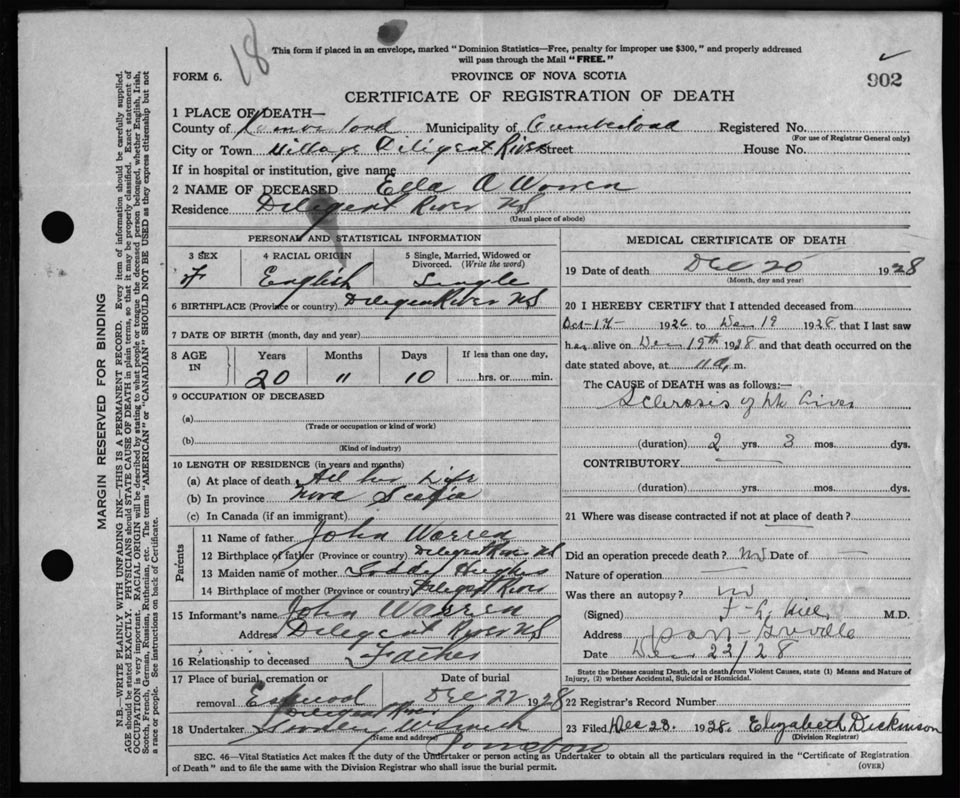 18
This form if placed in an envelope, marked "Dominion Statistics—Free, penalty for improper use $300," and properly addressed
will pass through the Mail "FREE."
FORM 6.
PROVINCE OF NOVA SCOTIA
902
CERTIFICATE OF REGISTRATION OF DEATH
MARGIN RESERVED FOR BINDING
N.B.—WRITE PLAINLY WITH UNFADING INK—THIS IS A PERMANENT RECORD. Every item of information should be carefully supplied.
AGE should be stated EXACTLY. PHYSICIANS should STATE CAUSE OF DEATH in plain terms, so that it may be properly classified. Exact statement of
OCCUPATION is very important. RACIAL ORIGIN will be described by stating to what people or tongue the deceased person belonged, whether English, Irish,
Scotch, French, German, Russian, Ruthenian, etc. The terms "AMERICAN" or "CANADIAN" SHOULD NOT BE USED as they express citizenship but not
a race or people. See instructions on back of Certificate.
1 PLACE OF DEATH—
County of Municipality of Cumberland Registered No.
(For use of Registrar General only)
City or Town Village Diligent River Street House No.
If in hospital or institution, give name
2 NAME OF DECEASED Ella A Warren
Residence Diligent River NS
(Usual place of abode)
PERSONAL AND STATISTICAL INFORMATION
3 SEX
F
4 RACIAL ORIGIN
English
5 Single, Married, Widowed or
Divorced. (Write the word)
Single
6 BIRTHPLACE (Province or country) Diligent River NS
7 DATE OF BIRTH (month, day and year)
8 AGE
IN
Years Months Days If less than one day,
20 " 10 hrs. or min.
9 OCCUPATION OF DECEASED
(a)
(Trade or occupation or kind of work)
(b)
(Kind of industry)
10 LENGTH OF RESIDENCE (in years and months)
(a) At place of death All her Life
(b) In province Nova Scotia
(c) In Canada (if an immigrant)
Parents
11 Name of father John Warren
12 Birthplace of father (Province or country) Diligent River NS
13 Maiden name of mother Hughes
14 Birthplace of mother (Province or country) Diligent River
15 Informant's name John Warren
Address Diligent River NS
16 Relationship to deceased Father
17 Place of burial, cremation or
removal
Diligent River
Date of burial
Dec 22 1928
18 Undertaker
(Name and address)
MEDICAL CERTIFICATE OF DEATH
19 Date of death Dec 20 1928
(Month, day and year)
20 I HEREBY CERTIFY that I attended deceased from
1926 to Dec 19 1928 that I last saw
her alive on Dec 19th 1928 and that death occurred on the
date stated above, at 11 a. m.
The CAUSE of DEATH was as follows:—
Sclerosis of the Liver
(duration) 2 yrs. 3 mos. dys.
CONTRIBUTORY
(duration) yrs. mos. dys.
21 Where was disease contracted if not at place of death?
Did an operation precede death? no Date of —
Nature of operation —
Was there an autopsy? no
(Signed) Hill M.D.
Address Parrsboro
Date Dec 22/28
State the Disease causing Death, or in death from Violent Causes, state (1) Means and Nature of
Injury, (2) whether Accidental, Suicidal or Homicidal.
22 Registrar's Record Number
23 Filed Dec 28. 1928. Elizabeth Dickinson
(Division Registrar)
SEC. 46—Vital Statistics Act makes it the duty of the Undertaker or person acting as Undertaker to obtain all the particulars required in the "Certificate of Registration
of Death" and to file the same with the Division Registrar who shall issue the burial permit.
(OVER)